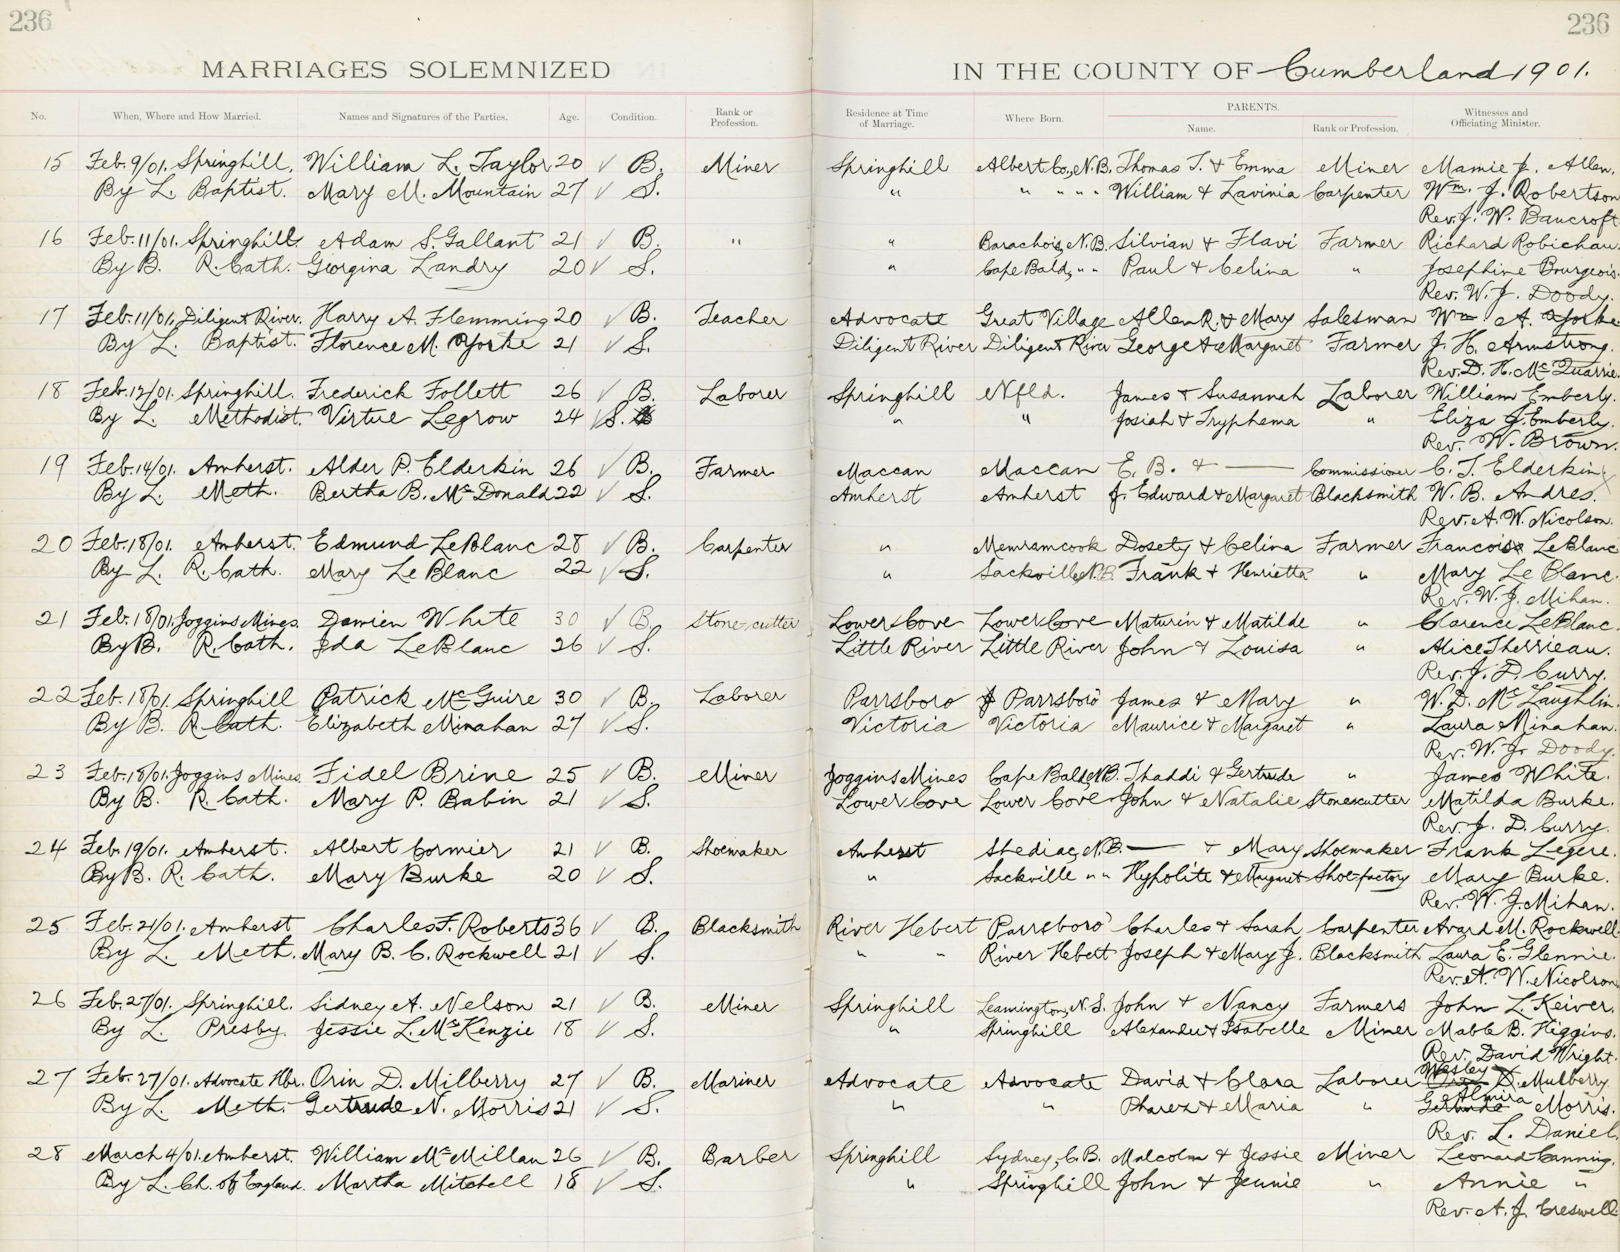 236 236
MARRIAGES SOLEMNIZED IN THE COUNTY OF Cumberland 1901.
No. When, Where and How Married. Names and Signatures of the Parties. Age. Condition. Rank or Profession. Residence at Time of Marriage. Where Born. PARENTS. Name. Rank or Profession. Witnesses and Officiating Minister.
15 Feb. 9/01. Springhill. William L. Taylor 20 B. Miner Springhill Albert Co., N.B. Thomas T. & Emma Miner Mamie J. Allen.
By L. Baptist. Mary M. Mountain 27 S. " " " " " William & Lavinia Carpenter Wm. J. Robertson
Rev. J. W. Bancroft
16 Feb. 11/01. Springhill. Adam S. Gallant 21 B. " " Barachois, N.B. Silvian & Flavi Farmer Richard Robichau.
By B. R. Cath. Georgina Landry 20 S. " Cape Bald, " " Paul & Celina " Josephine Bourgeois.
Rev. W. J. Doody.
17 Feb. 11/01. Diligent River. Harry A. Flemming 20 B. Teacher Advocate Great Village Allen R. & Mary Salesman Wm A. Yorke
By L. Baptist. Florence M. Yorke 21 S. Diligent River Diligent River George & Margaret Farmer J. H. Armstrong.
Rev. D. H. McQuarrie.
18 Feb. 12/01. Springhill. Frederick Follett 26 B. Laborer Springhill Nfld. James & Susannah Laborer William Emberly.
By L. Methodist. Virtue Legrow 24 S. " " Josiah & Tryphema " Eliza J. Emberly.
Rev. W. Brown.
19 Feb. 14/01. Amherst. Alder P. Elderkin 26 B. Farmer Maccan Maccan E. B. & — Commissioner C. T. Elderkin
By L. Meth. Bertha B. McDonald 22 S. Amherst Amherst J. Edward & Margaret Blacksmith W. B. Andres.
Rev. A. W. Nicolson.
20 Feb. 18/01. Amherst. Edmund LeBlanc 28 B. Carpenter " Memramcook Dosety & Celina Farmer Francois LeBlanc
By L. R. Cath. Mary LeBlanc 22 S. " Sackville, N.B. Frank & Henrietta " Mary Le Blanc.
Rev. W. J. Mihan.
21 Feb. 18/01. Joggins Mines. Damien White 30 B. Stone-cutter Lowers Cove Lowers Cove Maturin & Matilde " Clarence LeBlanc.
By B. R. Cath. Ida LeBlanc 26 S. Little River Little River John & Louisa " Alice Therrieau.
Rev. J. D. Curry.
22 Feb. 18/01 Springhill Patrick McGuire 30 B. Laborer Parrsboro Parrsboro James & Mary " W. D. McLaughlin.
By B. R. Cath. Elizabeth Minahan 27 S. Victoria Victoria Maurice & Margaret " Laura Minahan.
Rev. W. J. Doody.
23 Feb. 18/01. Joggins Mines Fidel Brine 25 B. Miner Joggins Mines Cape Bald, N.B. Thaddi & Gertrude " James White.
By B. R. Cath. Mary P. Babin 21 S. Lower Cove Lower Cove John & Natalie Stonecutter Matilda Burke.
Rev. J. D. Curry.
24 Feb. 19/01. Amherst. Albert Cormier 21 B. Shoemaker Amherst Shediac, N.B. — & Mary Shoemaker Frank Legere.
By B. R. Cath. Mary Burke 20 S. " Sackville " " Hypolite & Margaret Shoe-factory Mary Burke.
Rev. W. J. Mihan.
25 Feb. 21/01. Amherst Charles F. Roberts 36 B. Blacksmith River Hebert Parrsboro' Charles & Sarah Carpenter Avard M. Rockwell.
By L. Meth. Mary B. C. Rockwell 21 S. " " River Hebert Joseph & Mary J. Blacksmith Laura E. Glennie.
Rev. A. W. Nicolson
26 Feb. 27/01. Springhill. Sidney A. Nelson 21 B. Miner Springhill Leamington, N.S. John & Nancy Farmers John L. Keiver.
By L. Presby. Jessie L. McKenzie 18 S. " Springhill Alexander & Isabelle Miner Mable B. Higgins.
Rev. David Wright.
27 Feb. 27/01. Advocate Hbr. Orin D. Milberry 27 B. Mariner Advocate Advocate David & Clara Laborer Wesley D. Mulberry.
By L. Meth. Gertrude N. Morris 21 S. " " Pharez & Maria " Almira Morris.
Rev. L. Daniel.
28 March 4/01. Amherst. William McMillan 26 B. Barber Springhill Sydney, C.B. Malcolm & Jessie Miner Leonard Canning.
By L. Ch. of England. Martha Mitchell 18 S. " Springhill John & Jennie " Annie "
Rev. A. J. Creswell.